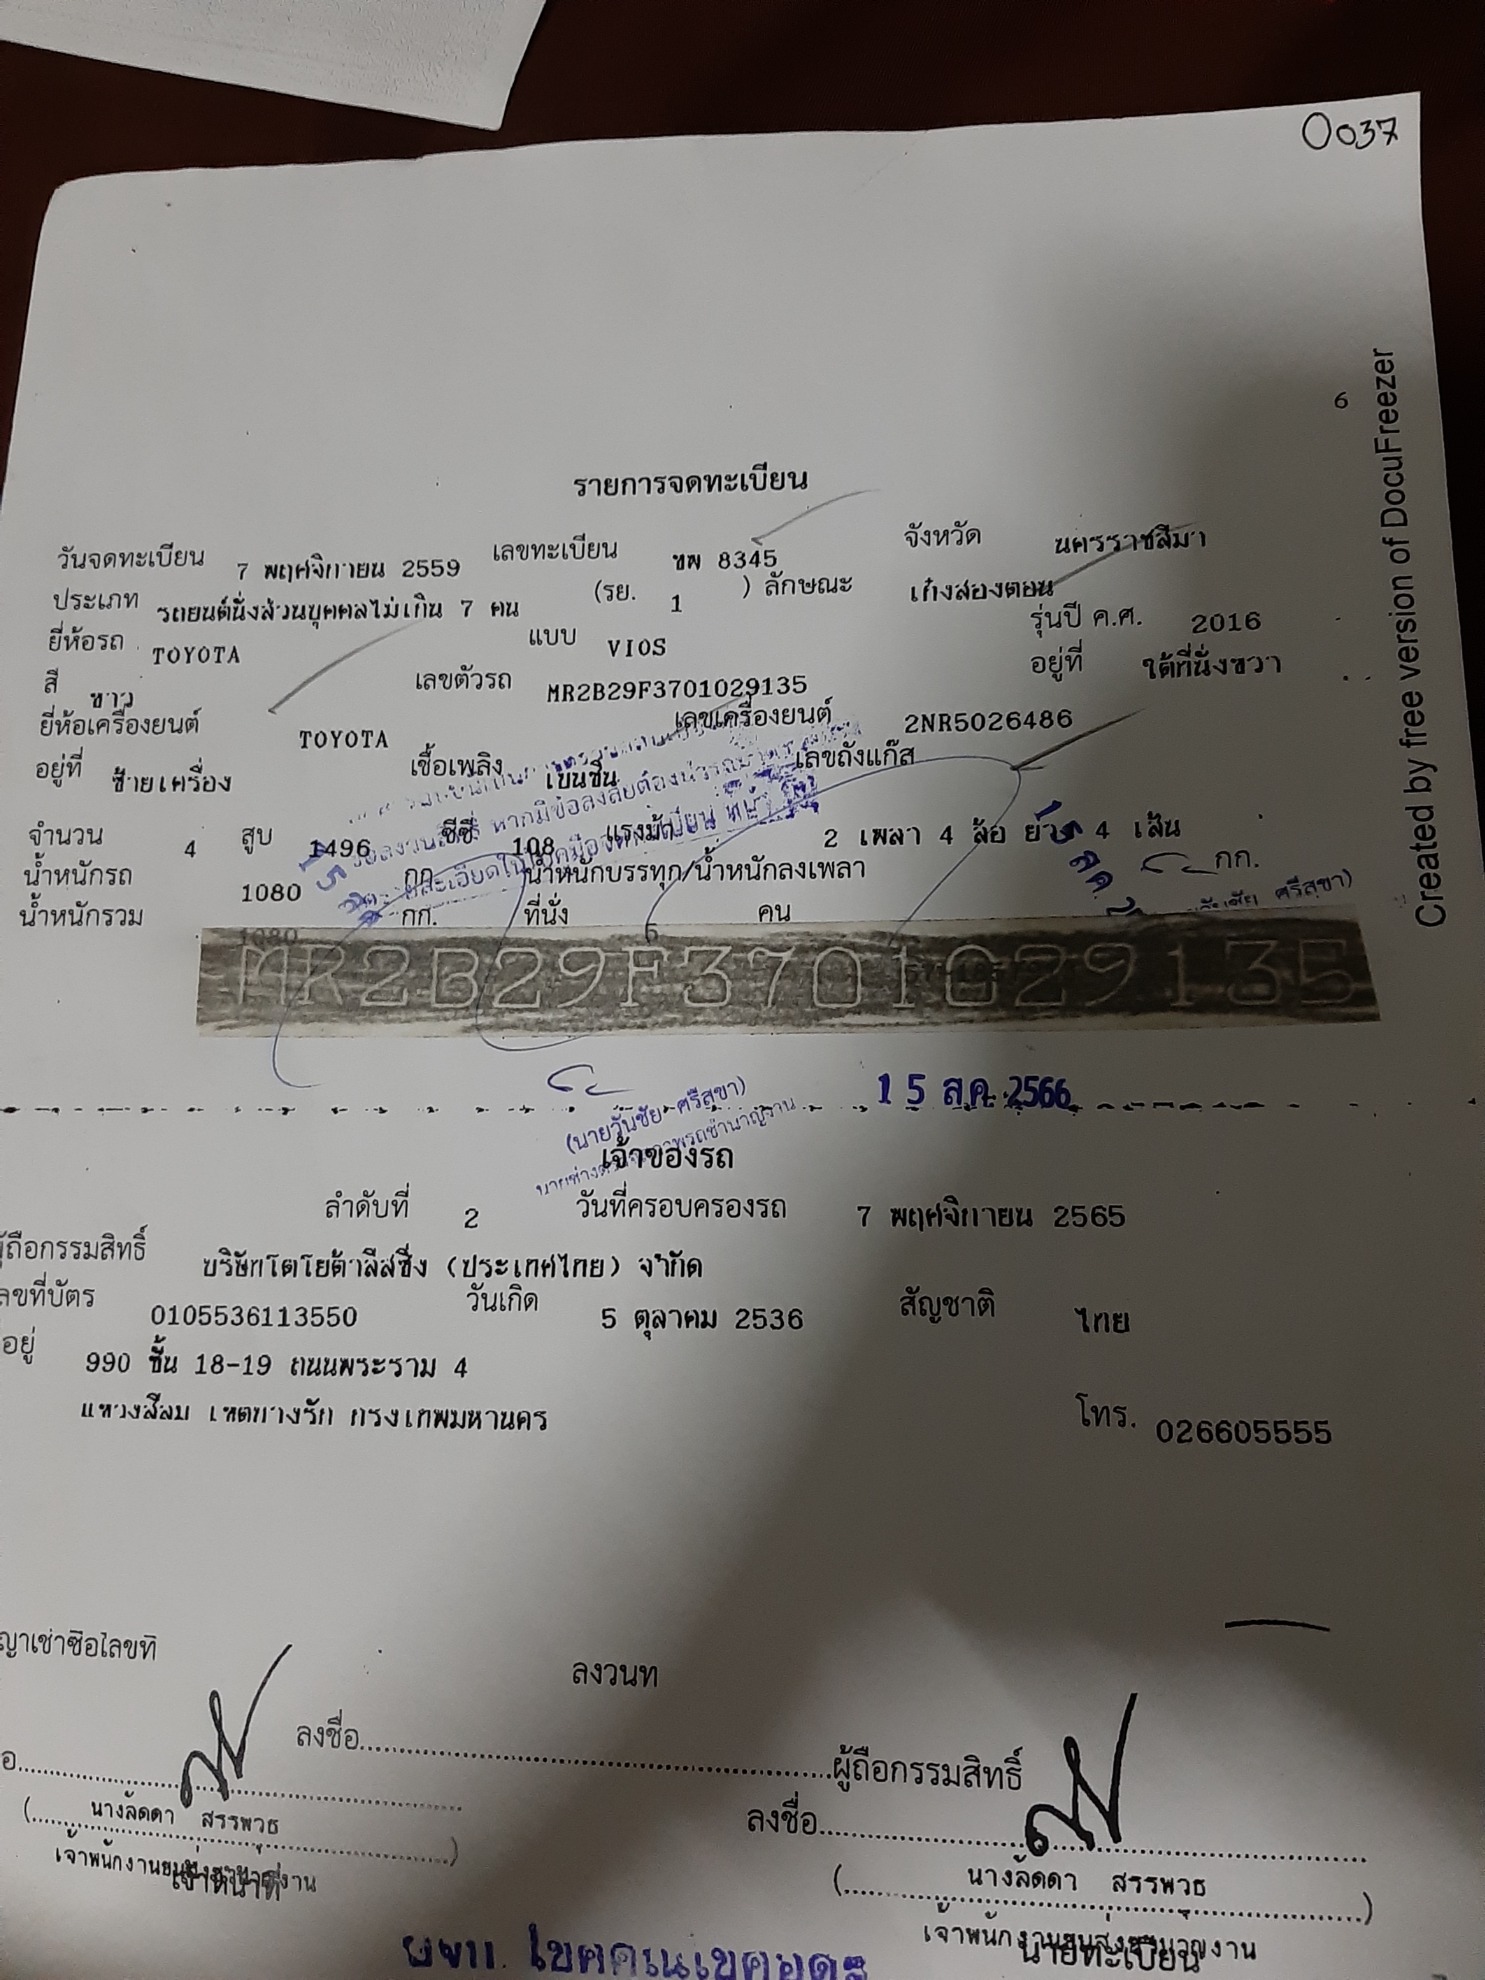 0037
6
Created by free version of DocuFreezer
รายการจดทะเบียน
วันจดทะเบียน 7 พฤศจิกายน 2559 เลขทะเบียน ขพ 8345 จังหวัด นครราชสีมา
ประเภท รถยนต์นั่งส่วนบุคคลไม่เกิน 7 คน (รย. 1 ) ลักษณะ เก๋งสองตอน
ยี่ห้อรถ TOYOTA แบบ VIOS รุ่นปี ค.ศ. 2016
สี ขาว เลขตัวรถ MR2B29F3701029135 อยู่ที่ ใต้ที่นั่งขวา
ยี่ห้อเครื่องยนต์ TOYOTA เลขเครื่องยนต์ 2NR5026486
อยู่ที่ ซ้ายเครื่อง เชื้อเพลิง เบนซิน เลขถังแก๊ส
จำนวน 4 สูบ 1496 ซีซี 108 แรงม้า 2 เพลา 4 ล้อ ยาง 4 เส้น
น้ำหนักรถ 1080 กก. น้ำหนักบรรทุก/น้ำหนักลงเพลา กก.
น้ำหนักรวม 1080 กก. ที่นั่ง คน
หากมีข้อสงสัยต้อง
15 ส.ค.
ศรีสุขา)
MR2B29F3701029135
15 ส.ค. 2566
(นายวันชัย ศรีสุขา)
เจ้าของรถ
ลำดับที่ 2 วันที่ครอบครองรถ 7 พฤศจิกายน 2565
ผู้ถือกรรมสิทธิ์ บริษัทโตโยต้าลีสซิ่ง (ประเทศไทย) จำกัด
เลขที่บัตร 0105536113550 วันเกิด 5 ตุลาคม 2536 สัญชาติ ไทย
ที่อยู่ 990 ชั้น 18-19 ถนนพระราม 4
แขวงสีลม เขตบางรัก กรุงเทพมหานคร โทร. 026605555
สัญญาเช่าซื้อเลขที่ ลงวันที่
ลงชื่อ ผู้ถือกรรมสิทธิ์
ลงชื่อ
(นางลัดดา สรรพวุธ)
เจ้าพนักงานขนส่งชำนาญงาน
เจ้าหน้าที่
(นางลัดดา สรรพวุธ)
เจ้าพนักงานขนส่งชำนาญงาน
นายทะเบียน